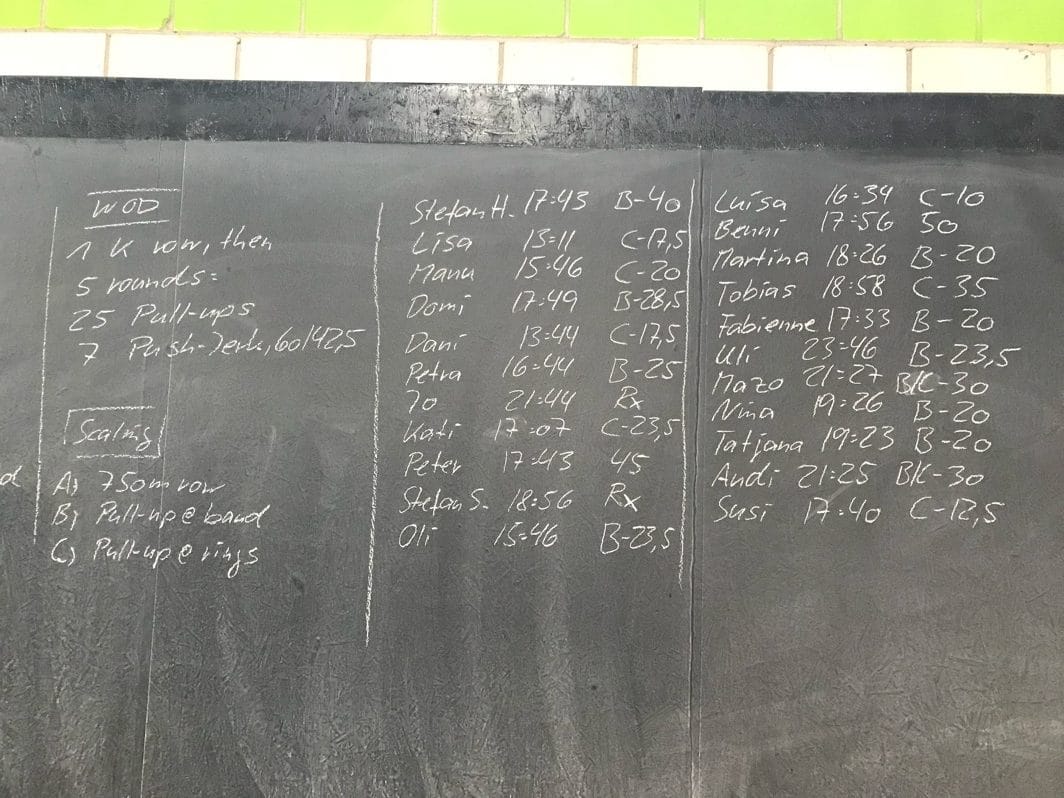 WOD
1 K row, then
5 rounds:
25 Pull-ups
7 Push-Jerk, 60/42,5
Scaling
A) 750m row
B) Pull-up@band
C) Pull-up@rings
Stefan H. 17:43 B-40
Lisa 13:11 C-17,5
Manu 15:46 C-20
Domi 17:49 B-28,5
Dani 13:44 C-17,5
Petra 16:44 B-25
Jo 21:44 Rx
Kati 17:07 C-23,5
Peter 17:43 45
Stefan S. 18:56 Rx
Oli 15:46 B-23,5
Luisa 16:34 C-10
Benni 17:56 50
Martina 18:26 B-20
Tobias 18:58 C-35
Fabienne 17:33 B-20
Uli 23:46 B-23,5
Mazo 21:27 BK-30
Nina 19:26 B-20
Tatjana 19:23 B-20
Andi 21:25 BK-30
Susi 17:40 C-12,5